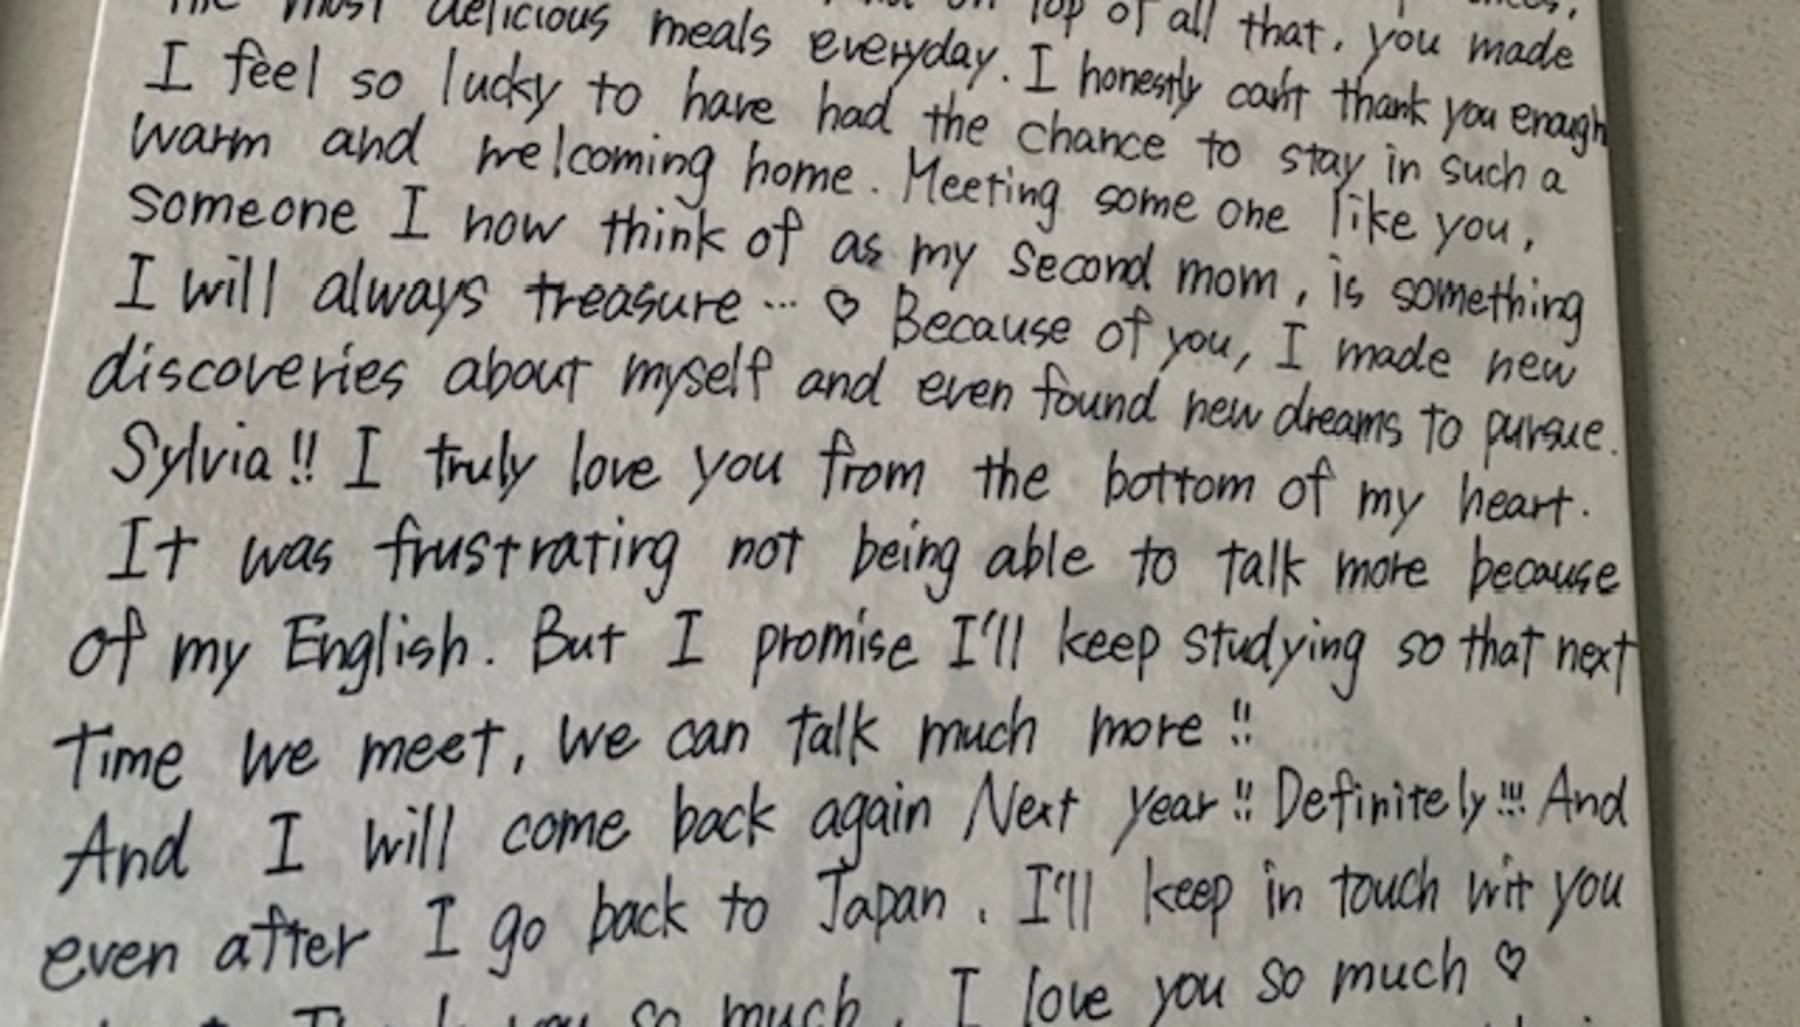 on top of all that, you made
the most delicious meals everyday. I honestly can't thank you enough
I feel so lucky to have had the chance to stay in such a
warm and welcoming home. Meeting some one like you,
someone I now think of as my second mom, is something
I will always treasure ... ♡ Because of you, I made new
discoveries about myself and even found new dreams to pursue.
Sylvia!! I truly love you from the bottom of my heart.
It was frustrating not being able to talk more because
of my English. But I promise I'll keep studying so that next
time we meet, we can talk much more!!
And I will come back again Next year!! Definitely!!! And
even after I go back to Japan. I'll keep in touch wit you
Thank you so much. I love you so much ♡